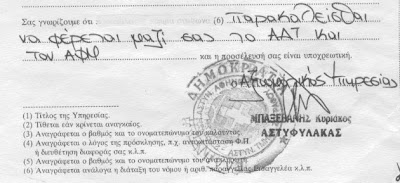 Σας γνωρίζουμε ότι (6) παρακαλείσθαι
να φέρεται μαζί σας το ΑΔΤ και
τον ΑΦΜ
και η προσέλευσή σας είναι υποχρεωτική.
Υπηρεσίας
ΜΠΑΞΕΒΑΝΗΣ Κυριάκος
ΑΣΤΥΦΥΛΑΚΑΣ
(1) Τίτλος της Υπηρεσίας.
(2) Τίθεται εάν κρίνεται αναγκαίος.
(3) Αναγράφεται ο βαθμός και το ονοματεπώνυμο του καλούντος.
(4) Αναγράφεται ο λόγος της πρόσκλησης, π.χ. αντικατάσταση Φ.Π.
ή διευθέτηση διαφοράς σας κ.λπ.
(5) Αναγράφεται ο βαθμός και το ονοματεπώνυμο του
(6) Αναγράφεται ανάλογα η διάταξη του νόμου η αριθ. παραγγελίας Εισαγγελέα κ.λπ.